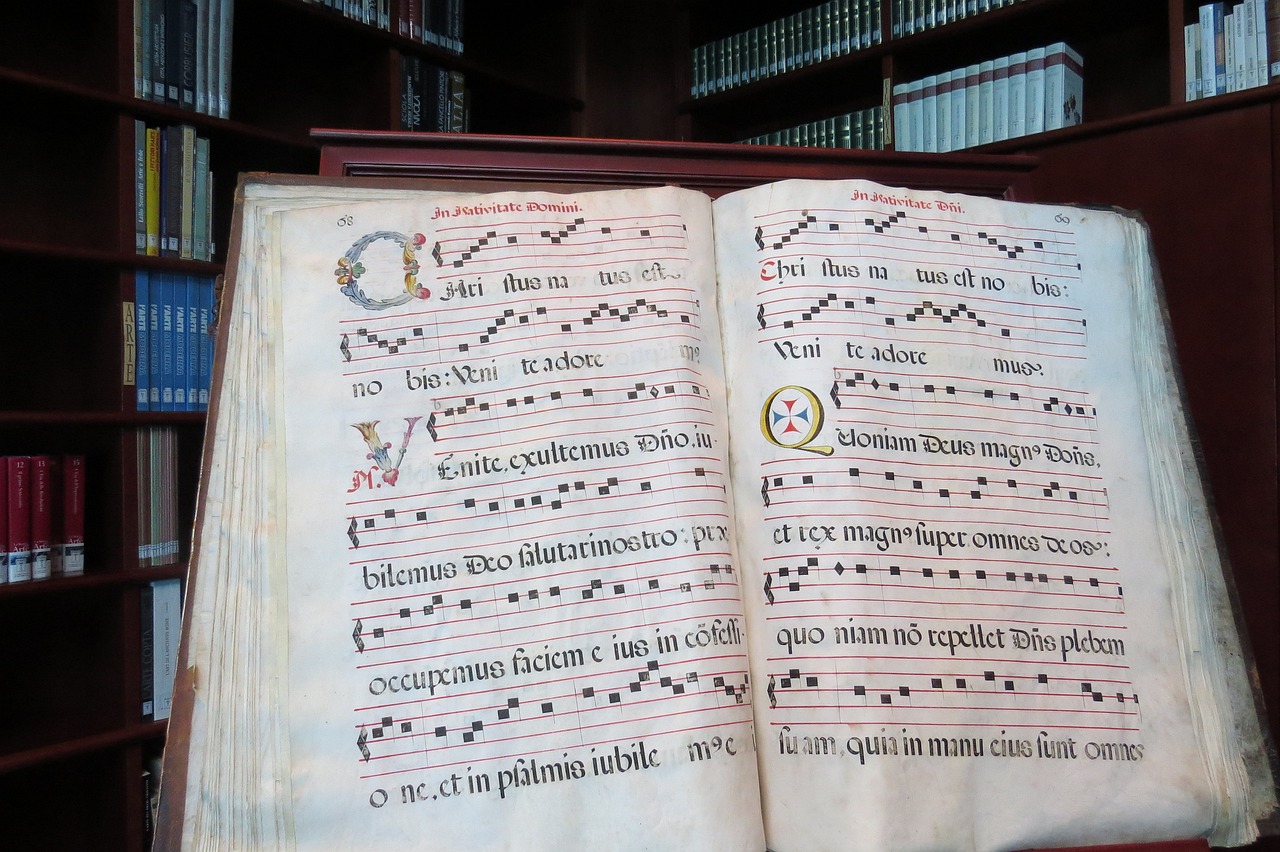 68
In Nativitate Domini.
CHri stus na tus est
no bis: Veni te adore m9
Ps. VEnite, exultemus Dño, iu-
bilemus Deo salutari nostro: præ
occupemus faciem e ius in cõfessi-
o ne, et in psalmis iubile m9 e
69
In Nativitate Dñi.
Chri stus na tus est no bis:
Veni te adore mus.
QUoniam Deus magn9 Doñs,
et rex magn9 super omnes deos:
quo niam nõ repellet Dñs plebem
suam, quia in manu eius sunt omnes
ARTE
L'ARTE
L'ARTE
L'ARTE
L'ARTE